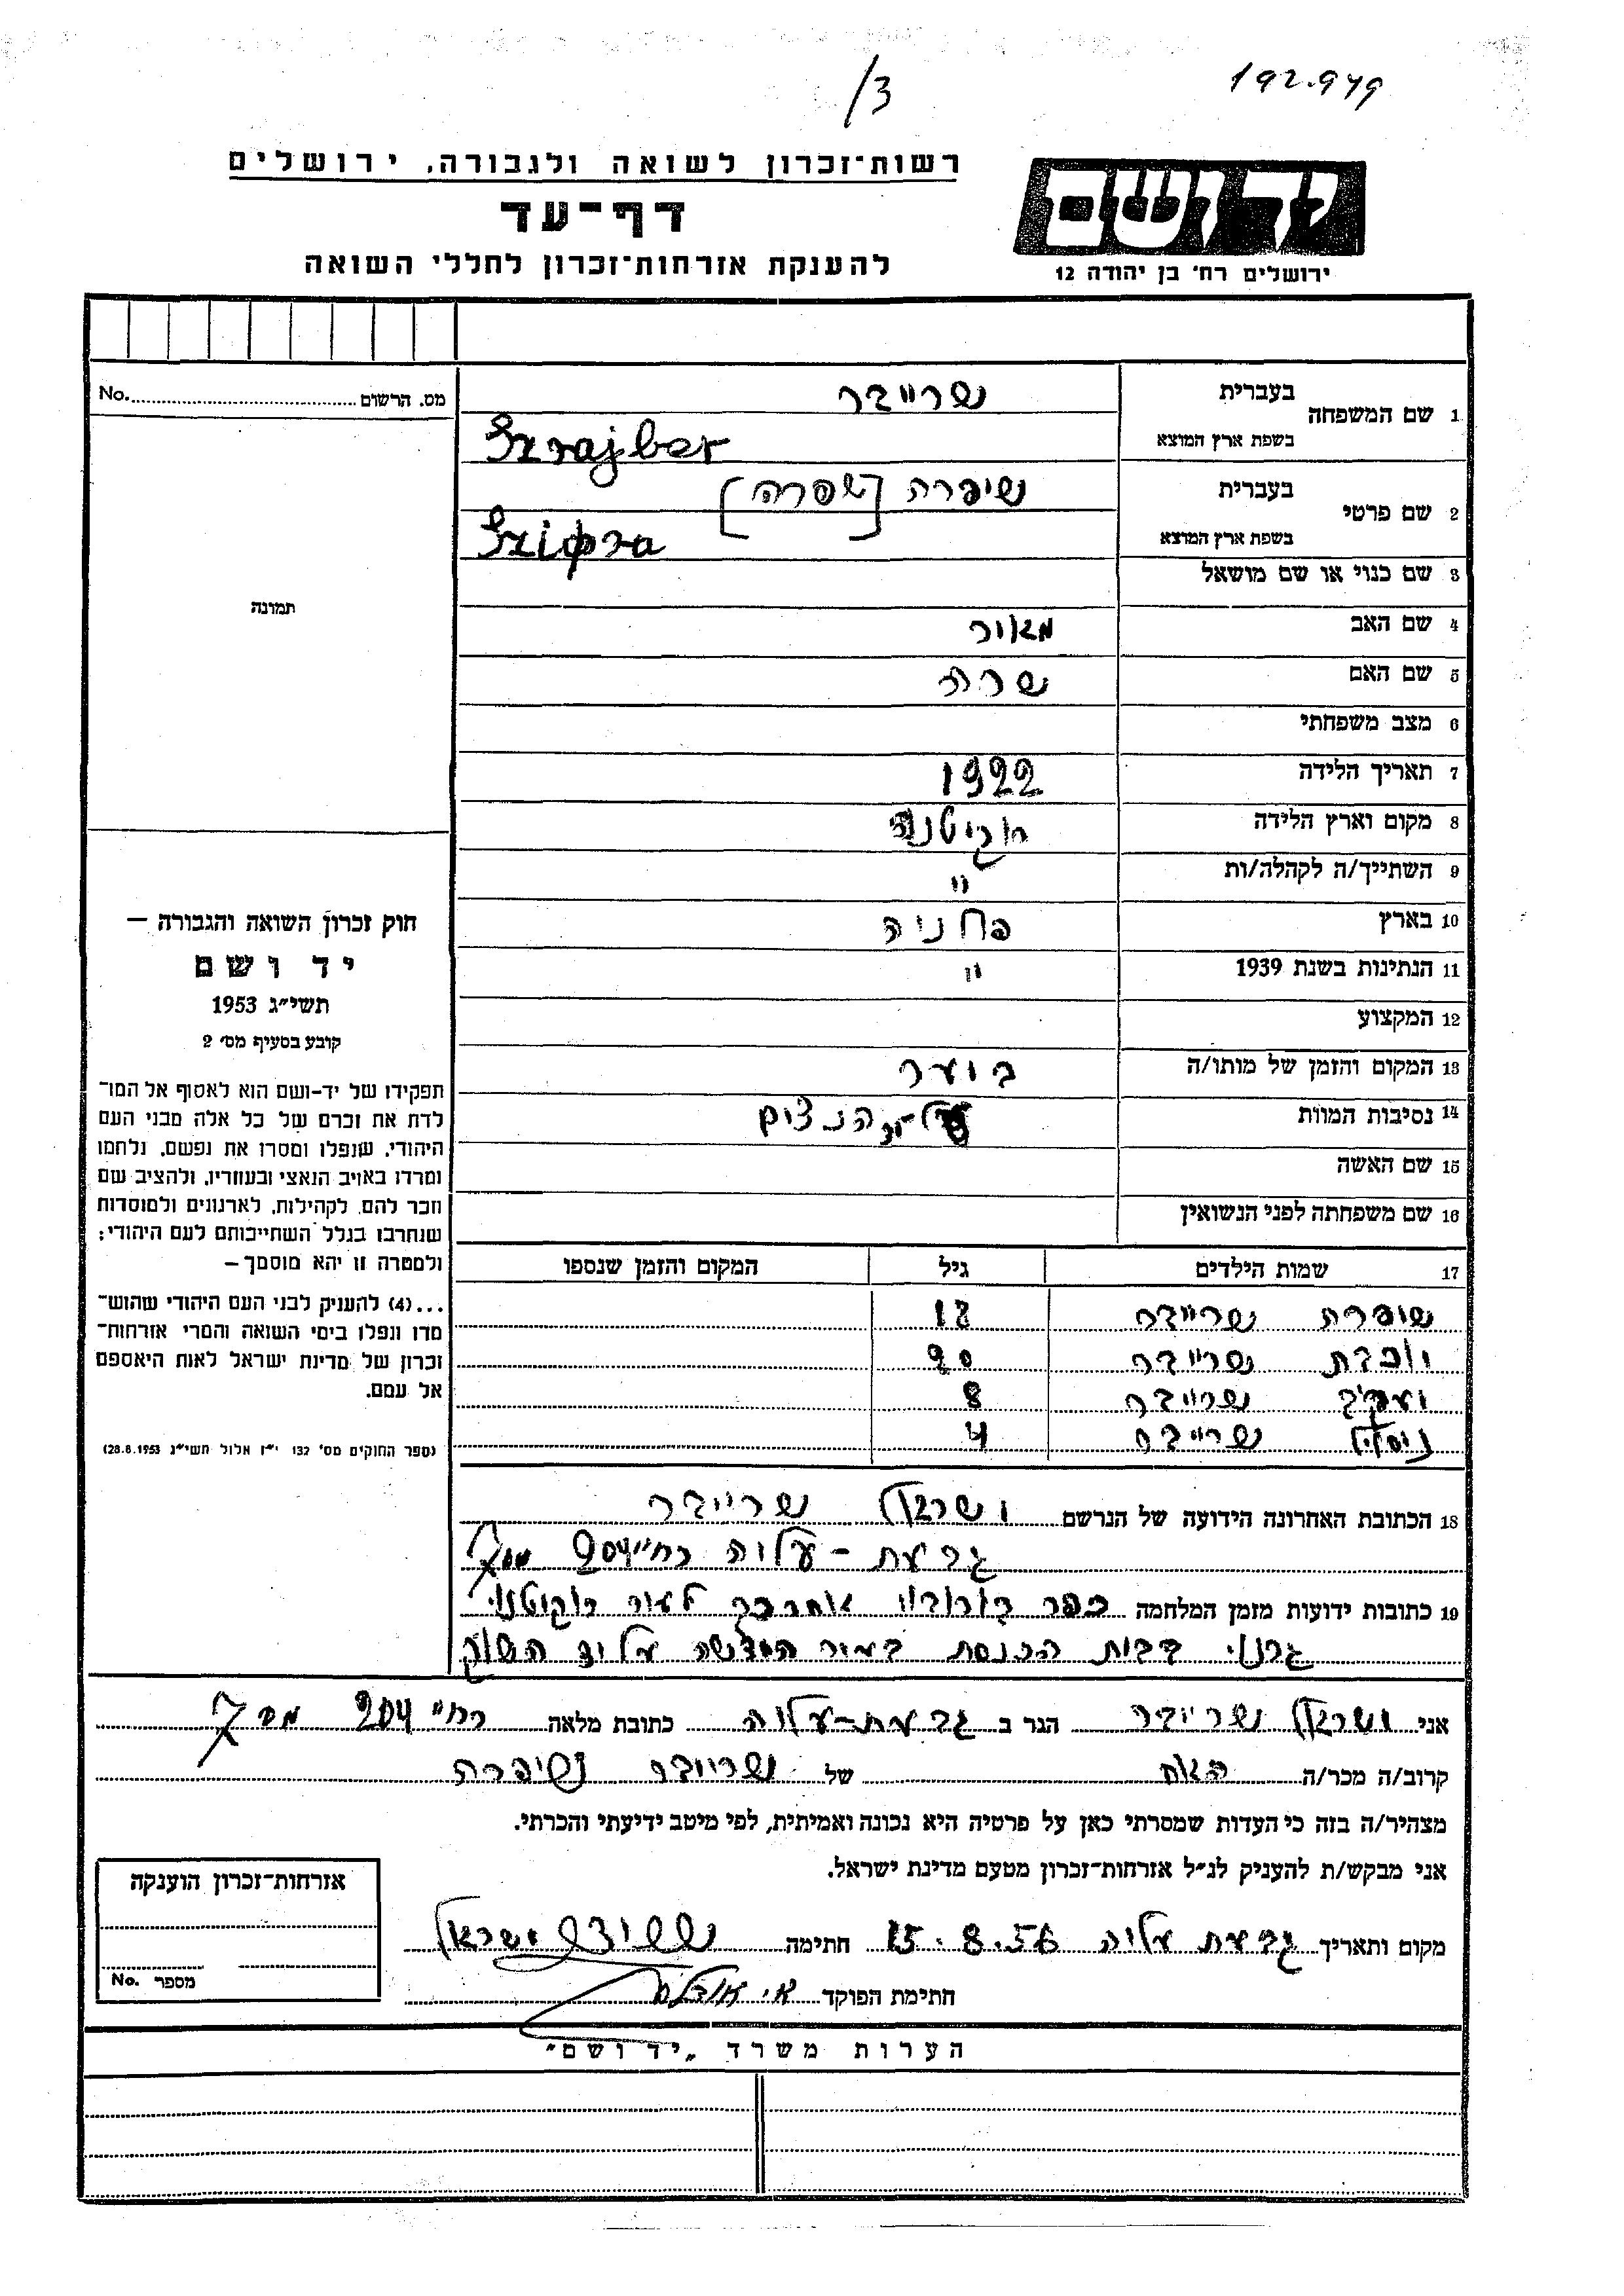 /3
192.949
רשות־זכרון לשואה ולגבורה, ירושלים
דף־עד
להענקת אזרחות־זכרון לחללי השואה
יד ושם
ירושלים רח' בן יהודה 12
מס. הרשום No.
תמונה
1 שם המשפחה
בעברית שרייבר
בשפת ארץ המוצא Szrajber
2 שם פרטי
בעברית שיפרה [שפרה]
בשפת ארץ המוצא Szifra
3 שם כנוי או שם מושאל
4 שם האב מאיר
5 שם האם שרה
6 מצב משפחתי
7 תאריך הלידה 1922
8 מקום וארץ הלידה
9 השתייך/ה לקהלה/ות "
10 בארץ
11 הנתינות בשנת 1939 "
12 המקצוע
13 המקום והזמן של מותו/ה
14 נסיבות המוות
15 שם האשה
16 שם משפחתה לפני הנשואין
17 שמות הילדים גיל המקום והזמן שנספו
שרייבר 18
שרייבר 20
שרייבר 8
שרייבר 4
18 הכתובת האחרונה הידועה של הנרשם ישראל שרייבר
גבעת־עליה רח' 204 מס 7
19 כתובות ידועות מזמן המלחמה כפר
הכנסת על יד השוק
חוק זכרון השואה והגבורה –
יד ושם
תשי״ג 1953
קובע בסעיף מס׳ 2
תפקידו של יד־ושם הוא לאסוף אל המו־
לדת את זכרם של כל אלה מבני העם
היהודי, שנפלו ומסרו את נפשם, נלחמו
ומרדו באויב הנאצי ובעוזריו, ולהציב שם
וזכר להם, לקהילות, לארגונים ולמוסדות
שנחרבו בגלל השתייכותם לעם היהודי;
ולמטרה זו יהא מוסמך –
...(4) להעניק לבני העם היהודי שהוש־
מדו ונפלו בימי השואה והמרי אזרחות־
זכרון של מדינת ישראל לאות היאספם
אל עמם.
(ספר החוקים מס' 132 י״ז אלול תשי״ג 28.8.1953)
אני ישראל שרייבר הגר ב גבעת־עליה כתובת מלאה רח' 204 מס 7
קרוב/ה מכר/ה האח של שרייבר שיפרה
מצהיר/ה בזה כי העדות שמסרתי כאן על פרטיה היא נכונה ואמיתית, לפי מיטב ידיעתי והכרתי.
אני מבקש/ת להעניק לנ״ל אזרחות־זכרון מטעם מדינת ישראל.
מקום ותאריך גבעת עליה 15.8.56 חתימה ישראל
חתימת הפוקד
אזרחות־זכרון הוענקה
מספר No.
הערות משרד „יד ושם״